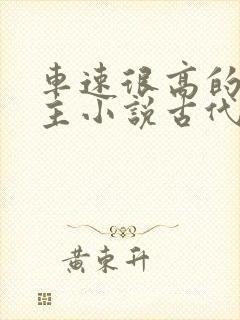 車速很高的
主小説古代
黃東升